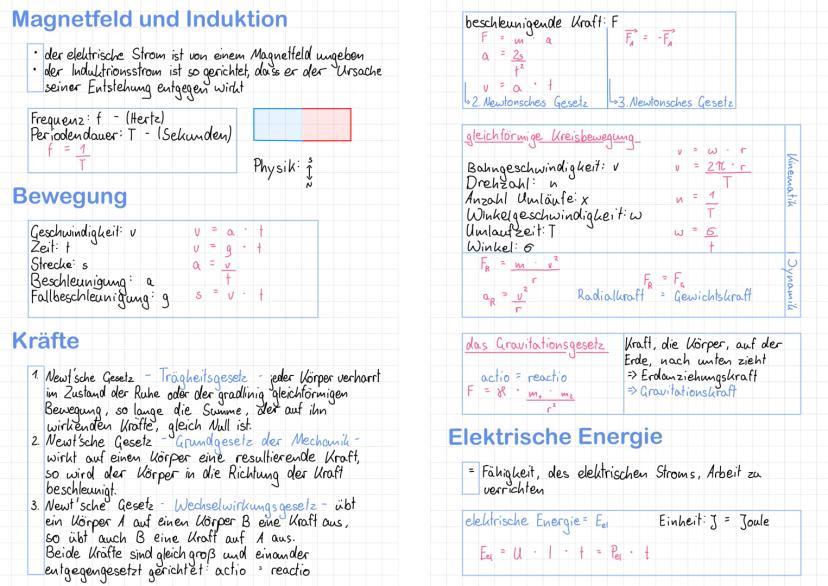 Magnetfeld und Induktion
· der elektrische Strom ist von einem Magnetfeld umgeben
· der Induktionsstrom ist so gerichtet, dass er der Ursache
seiner Entstehung entgegen wirkt
Frequenz: f - (Hertz)
Periodendauer: T - (Sekunden)
f = 1/T
Physik: S
N
Bewegung
Geschwindigkeit: v v = a · t
Zeit: t v = g · t
Strecke: s a = v/t
Beschleunigung: a
Fallbeschleunigung: g s = v · t
Kräfte
1. Newt'sche Gesetz - Trägheitsgesetz - jeder Körper verharrt
im Zustand der Ruhe oder der gradlinig gleichförmigen
Bewegung, so lange die Summe, der auf ihn
wirkenden Kräfte, gleich Null ist.
2. Newt'sche Gesetz - Grundgesetz der Mechanik -
wirkt auf einen Körper eine resultierende Kraft,
so wird der Körper in die Richtung der Kraft
beschleunigt.
3. Newt'sche Gesetz - Wechselwirkungsgesetz - übt
ein Körper A auf einen Körper B eine Kraft aus,
so übt auch B eine Kraft auf A aus.
Beide Kräfte sind gleich groß und einander
entgegengesetzt gerichtet: actio = reactio
beschleunigende Kraft: F
F = m · a
a = 2s/t²
v = a · t
↳ 2. Newtonsches Gesetz
F⃗₁ = -F⃗₁
↳ 3. Newtonsches Gesetz
gleichförmige Kreisbewegung
Bahngeschwindigkeit: v
Drehzahl: n
Anzahl Umläufe: x
Winkelgeschwindigkeit: ω
Umlaufzeit: T
Winkel: σ
v = ω · r
v = 2π · r/T
n = 1/T
ω = σ/t
Kinematik
F_R = m · v²/r
a_R = v²/r
F_R = F_G
Radialkraft = Gewichtskraft
Dynamik
das Gravitationsgesetz
actio = reactio
F = γ · m₁ · m₂/r²
Kraft, die Körper, auf der
Erde, nach unten zieht
⇒ Erdanziehungskraft
⇒ Gravitationskraft
Elektrische Energie
= Fähigkeit, des elektrischen Stroms, Arbeit zu
verrichten
elektrische Energie = E_el Einheit: J = Joule
E_el = U · I · t = P_el · t